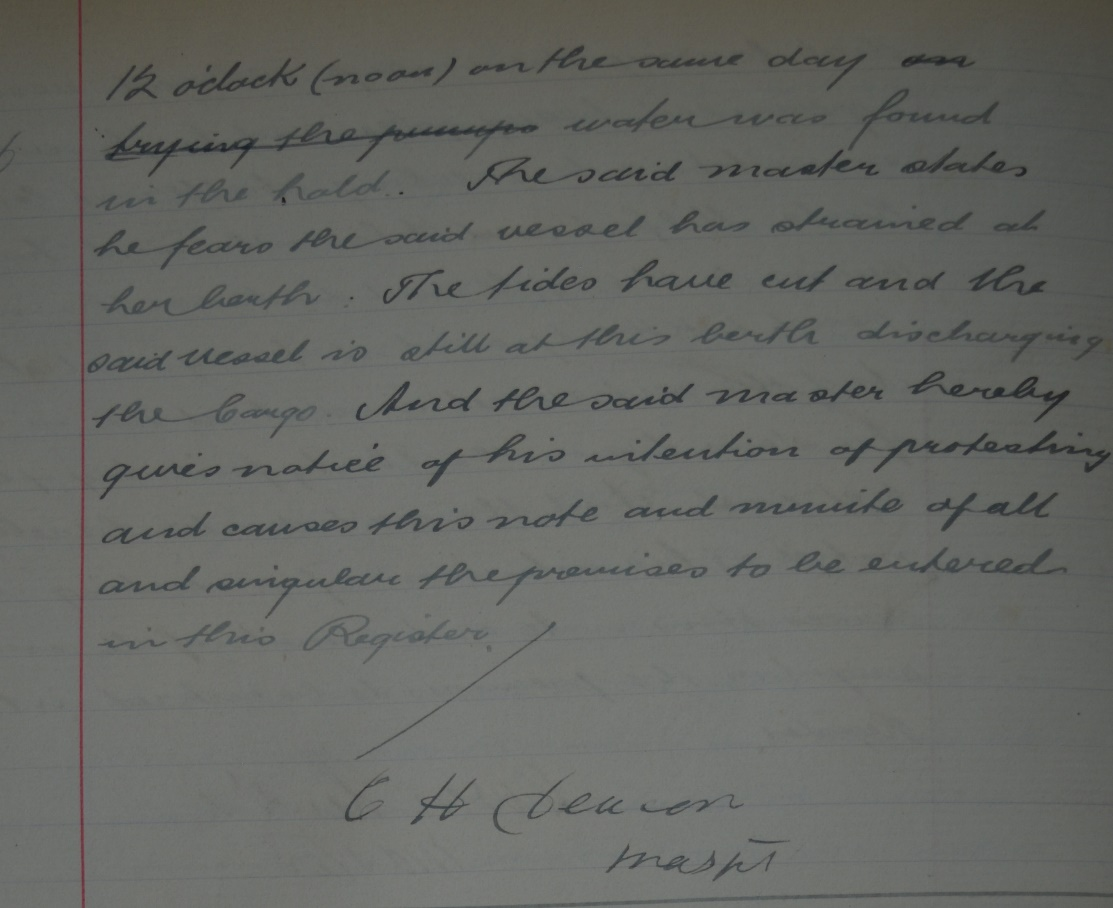 12 o'clock (noon) on the same day on
trying the pumps water was found
in the hold. The said master states
he fears the said vessel has strained at
her berth. The tides have cut and the
said vessel is still at this berth discharging
the Cargo. And the said master hereby
gives notice of his intention of protesting
and causes this note and minute of all
and singular the premises to be entered
in this Register.
C H